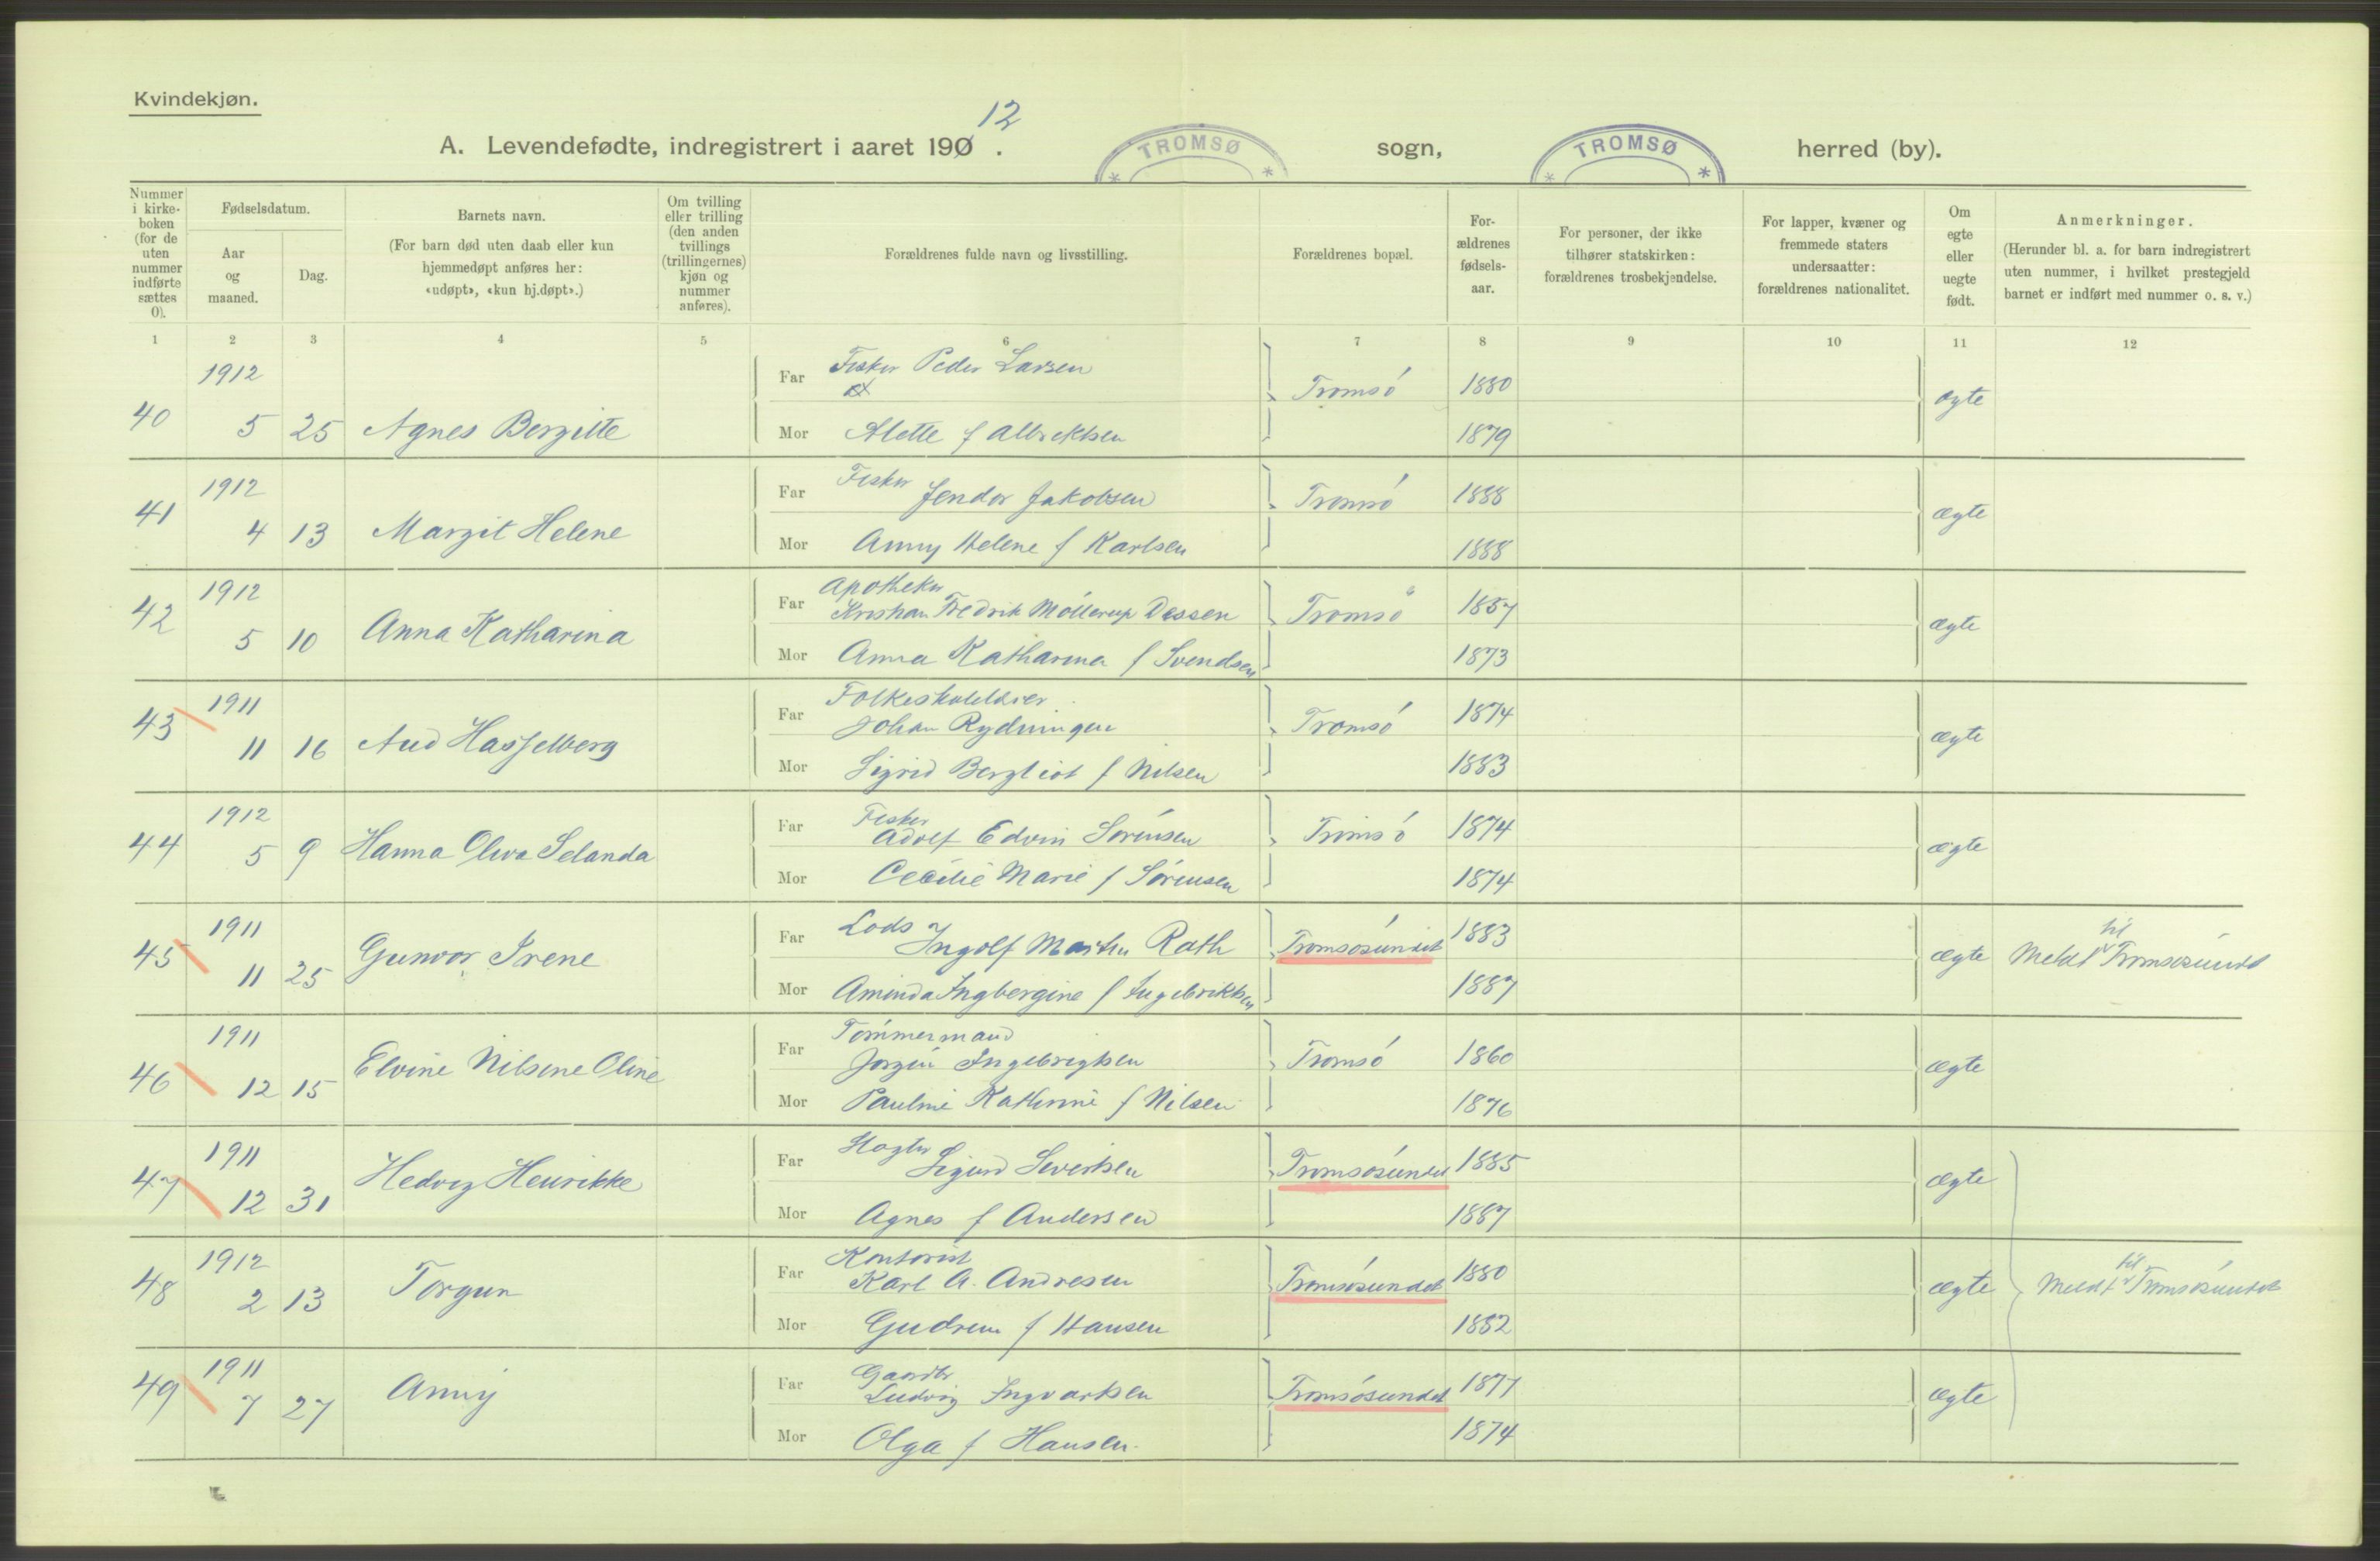 Kvindekjøn.
A. Levendefødte, indregistrert i aaret 190 12.
TROMSØ
sogn,
TROMSØ
herred (by).
Nummer i kirke-boken (for de uten nummer indførte sættes 0).
Fødselsdatum.
Aar og maaned.
Dag.
Barnets navn.
(For barn død uten daab eller kun hjemmedøpt anføres her: «udøpt», «kun hj.døpt».)
Om tvilling eller trilling (den anden tvillings (trillingernes) kjøn og nummer anføres).
Forældrenes fulde navn og livsstilling.
Forældrenes bopæl.
For-ældrenes fødsels-aar.
For personer, der ikke tilhører statskirken: forældrenes trosbekjendelse.
For lapper, kvæner og fremmede staters undersaatter: forældrenes nationalitet.
Om egte eller uegte født.
Anmerkninger.
(Herunder bl. a. for barn indregistrert uten nummer, i hvilket prestegjeld barnet er indført med nummer o. s. v.)
1 2 3 4 5 6 7 8 9 10 11 12
1912
40 5 25 Agnes Bergitte
Far Fisker Peder Larsen Tromsó 1880 ægte
Mor Alette f Albrektsen 1879
1912
41 4 13 Margit Helene
Far Fisker Jendor Jakobsen Tromsó 1888 ægte
Mor Anny Helene f Karlsen 1888
1912
42 5 10 Anna Katharina
Far Apotheker
Kristian Fredrik Möllerup Dessen Tromsö 1857 ægte
Mor Anna Katharina f Svendsen 1873
1911
43 11 16 Aud Hasselberg
Far Folkeskolelærer
Johan Rydningen Tromsó 1874 ægte
Mor Sigrid Bergliot f Nilsen 1883
1912
44 5 9 Hanna Oliva Selanda
Far Fisker
Adolf Edvin Sörensen Tromsó 1874 ægte
Mor Cecilie Marie f Sörensen 1874
1911
45 11 25 Gunvor Irene
Far Lods Ingolf Martin Rath Tromsösundet 1883 ægte Meldt til Tromsösundet
Mor Aminda Ingbergine f Ingebriktsen 1887
1911
46 12 15 Elvine Nilsine Oline
Far Tömmermand
Jörgin Ingebrigtsen Tromsó 1860 ægte
Mor Pauline Kathrine f Nilsen 1876
1911
47 12 31 Hedvig Henrikke
Far Sigurd Sivertsen Tromsösundet 1885 ægte
Mor Agnes f Andersen 1887
1912
48 2 13 Torgun
Far Kontorist
Karl A. Andresen Tromsösundet 1880 ægte Meldt til Tromsösundet
Mor Gudrun f Hansen 1882
1911
49 7 27 Anny
Far Gaardbr
Ludvig Ingvartsen Tromsösundet 1877 ægte
Mor Olga f Hansen. 1874